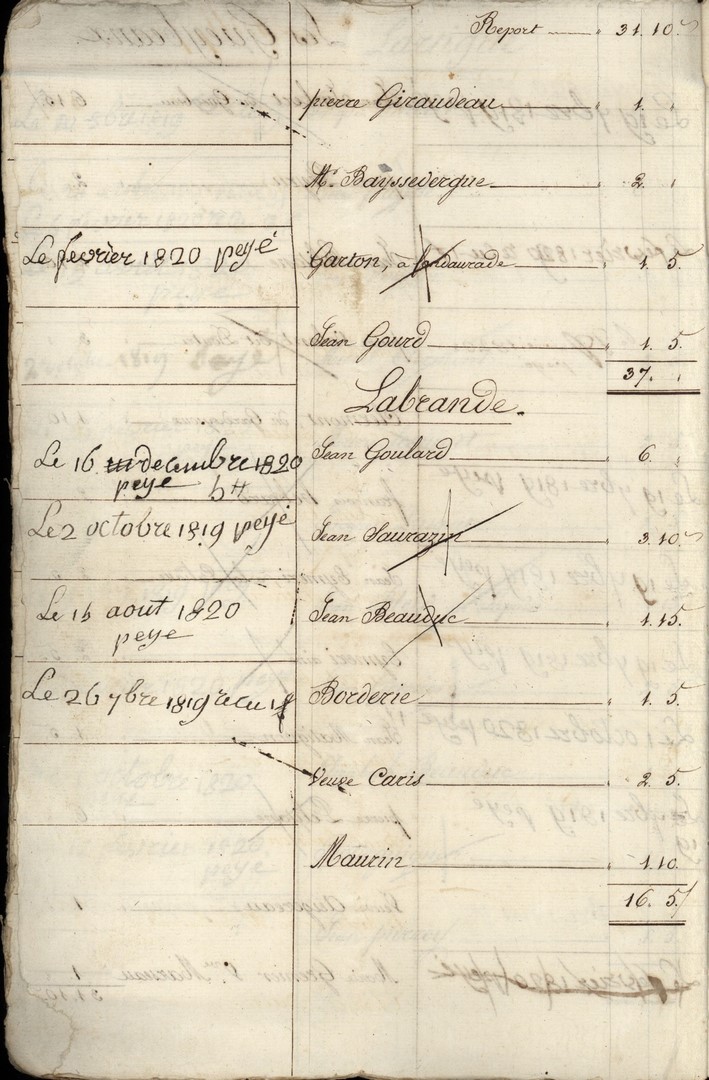 Report " 31. 10.
pierre Giraudeau " 1. "
Mr. Bayssevergue " 2. "
Le fevrier 1820 peyé
Garton, à " 1. 5.
Jean Gourd " 1. 5.
37. "
Labrande.
Jean Goulard " 6. "
Le 16 decembre 1820
peye
Le 2 octobre 1819 peyé
Jean Saurazin " 3. 10
Le 16 aout 1820
peye
Jean Beauduc " 1. 15.
Le 26 7bre 1819 recu 1
Borderie " 1. 5
Veuve Caris " 2. 5.
Maurin " 1. 10.
16. 5